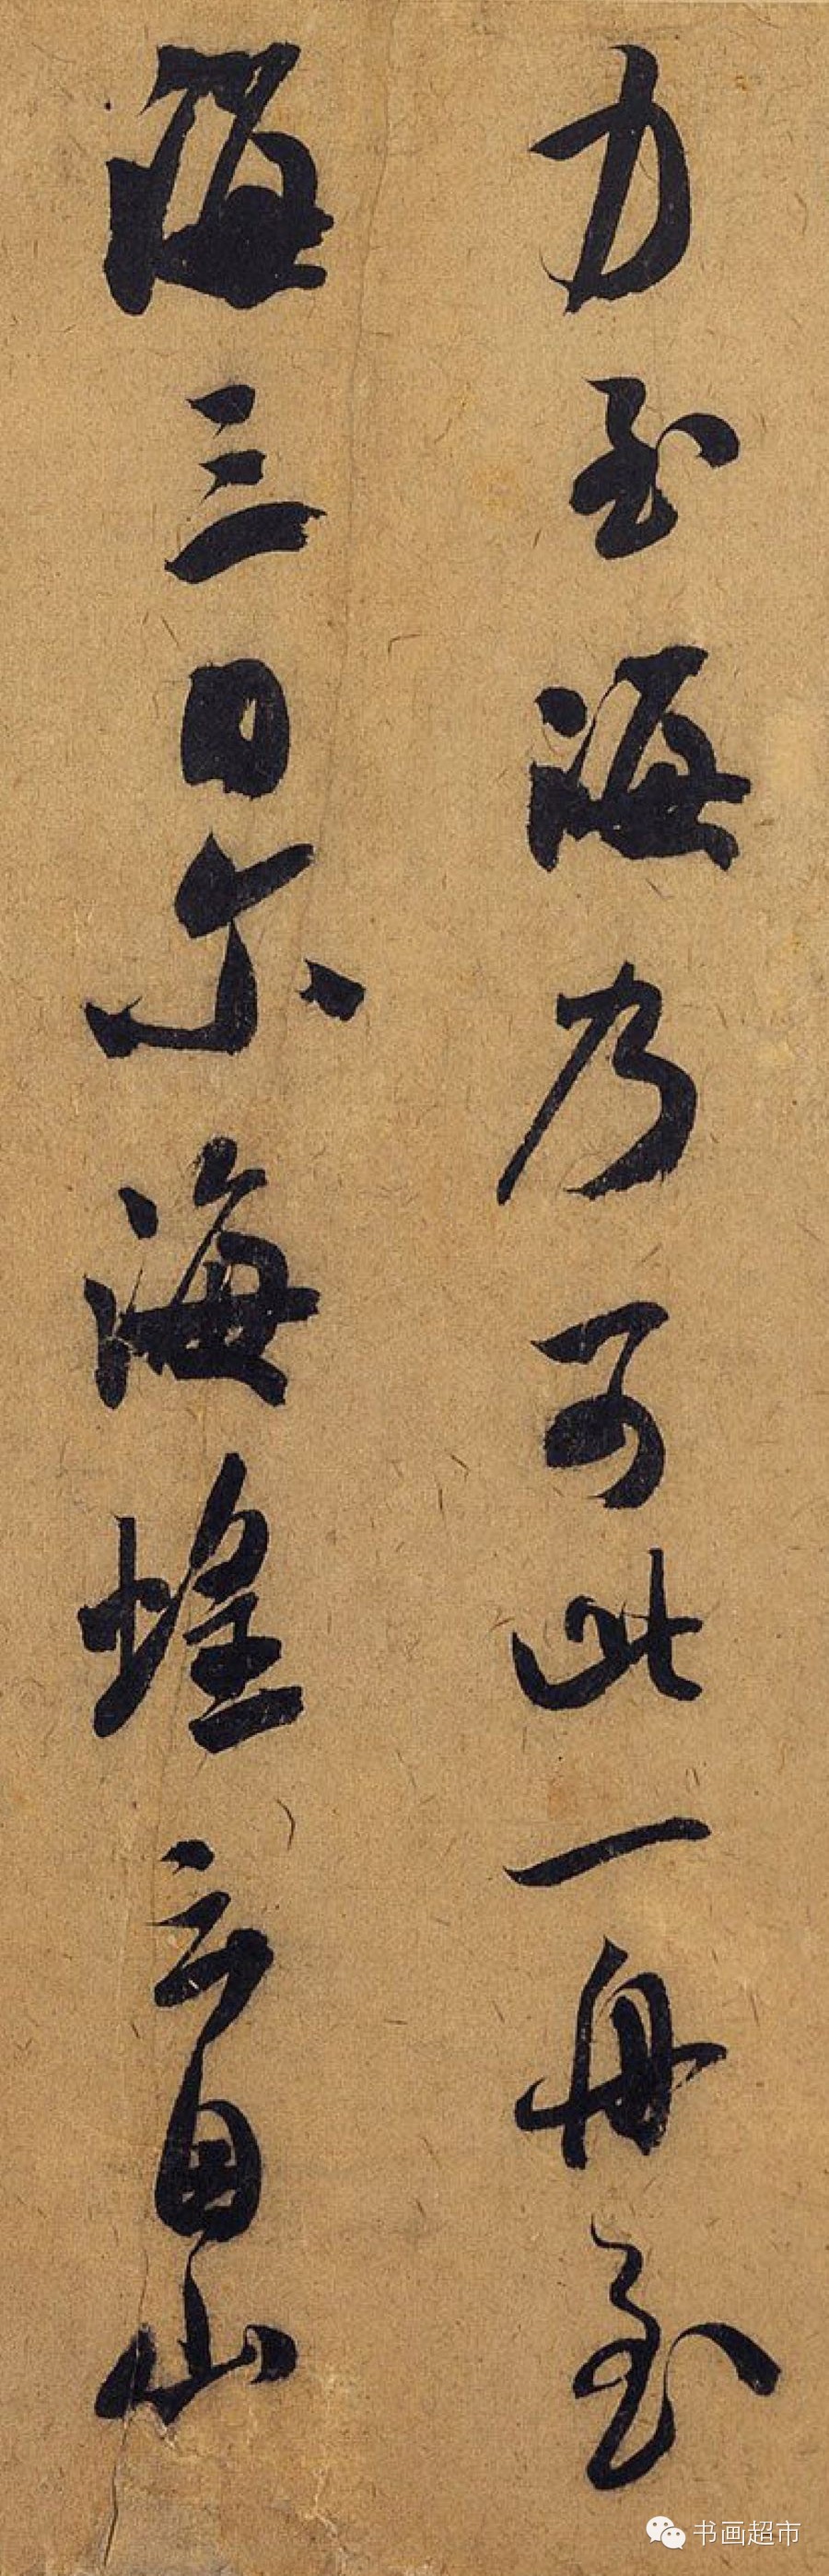 力至海乃可此一舟至
海三日尔海蝗云自山
书画超市